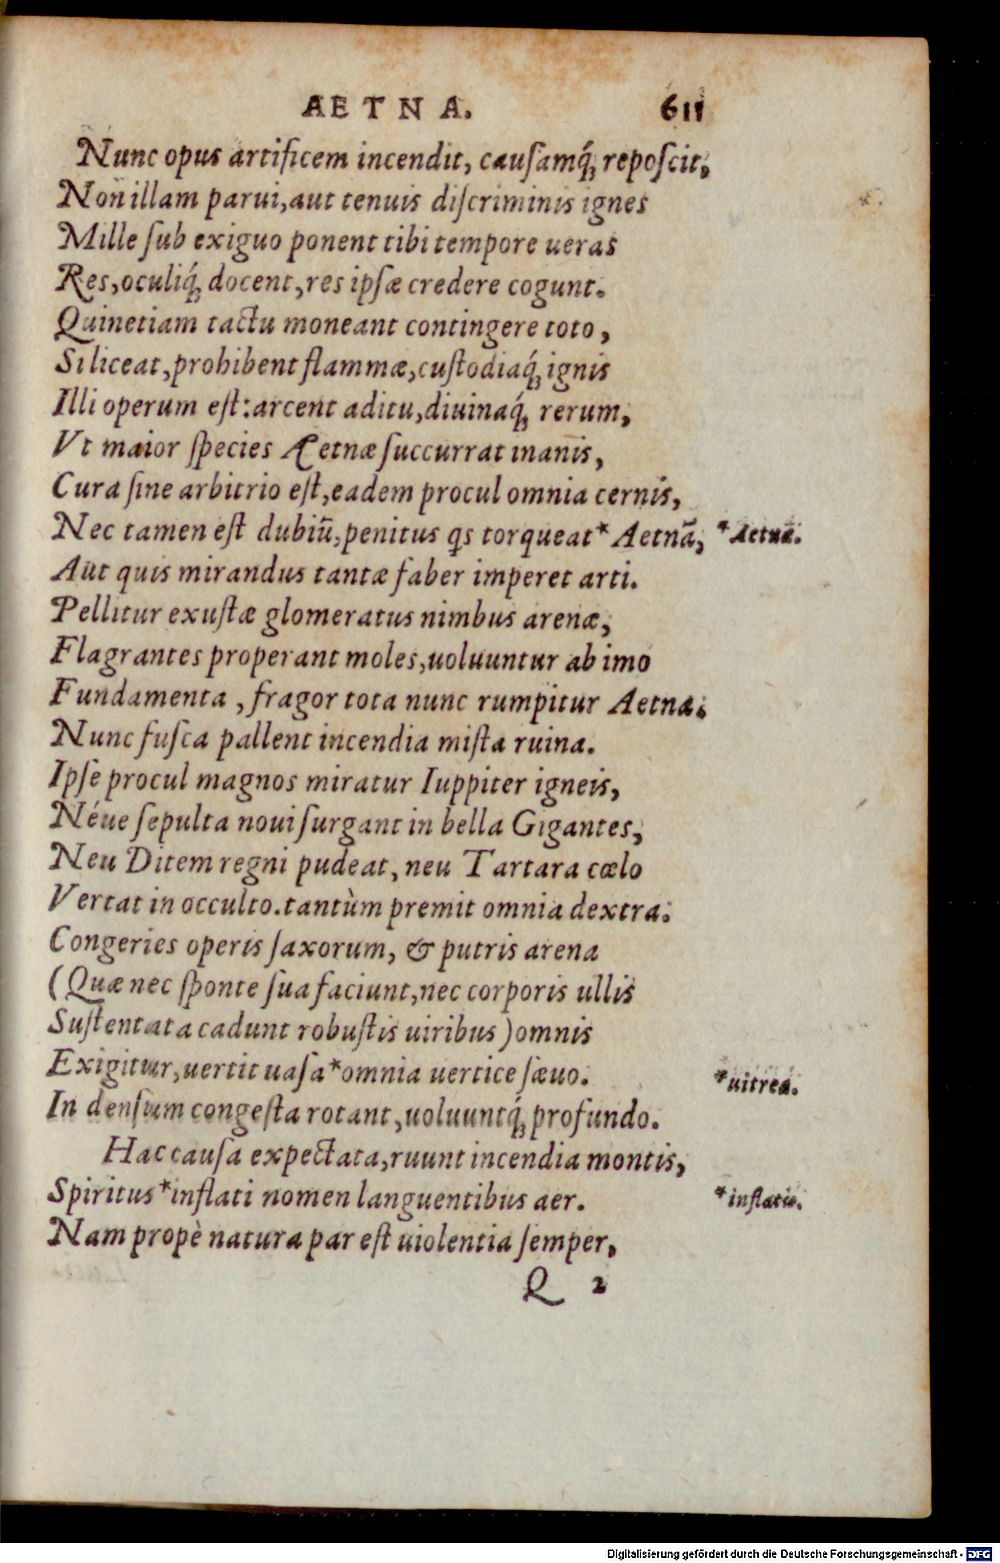 AETNA. 611
Nunc opus artificem incendit, causamq́; reposcit,
Non illam parui, aut tenuis discriminis ignes
Mille sub exiguo ponent tibi tempore ueras
Res, oculiq́; docent, res ipsæ credere cogunt.
Quinetiam tactu moneant contingere toto,
Si liceat, prohibent flammæ, custodiaq́; ignis
Illi operum est: arcent aditu, diuinaq́; rerum,
Vt maior species Ætnæ succurrat inanis,
Cura sine arbitrio est, eadem procul omnia cernis,
Nec tamen est dubiū, penitus qs torqueat* Aetnā, *Aetna.
Aut quis mirandus tantæ faber imperet arti.
Pellitur exustæ glomeratus nimbus arenæ,
Flagrantes properant moles, uoluuntur ab imo
Fundamenta, fragor tota nunc rumpitur Aetna.
Nunc fusca pallent incendia mista ruina.
Ipse procul magnos miratur Iuppiter igneis,
Néue sepulta noui surgant in bella Gigantes,
Neu Ditem regni pudeat, neu Tartara cœlo
Vertat in occulto. tantùm premit omnia dextra.
Congeries operis saxorum, & putris arena
(Quæ nec sponte sua faciunt, nec corporis ullis
Sustentata cadunt robustis uiribus) omnis
Exigitur, uertit uasa* omnia uertice sæuo. *uitrea.
In densum congesta rotant, uoluuntq́; profundo.
Hac causa expectata, ruunt incendia montis,
Spiritus *inflati nomen languentibus aer. *inflatis.
Nam propè natura par est uiolentia semper,
Q 2
Digitalisierung gefördert durch die Deutsche Forschungsgemeinschaft - DFG